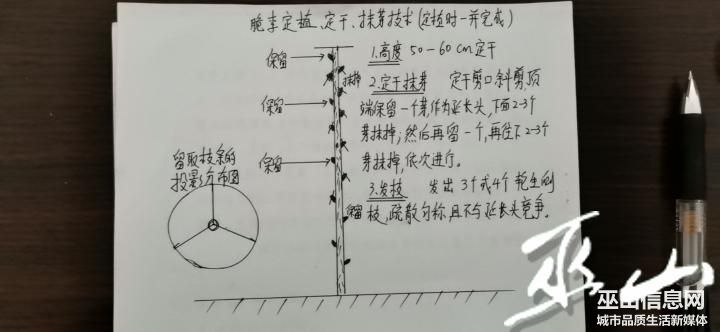 脆李定植、定干、抹芽技术(定植时一并完成)
保留
1.高度 50-60cm定干
抹掉
2.定干抹芽 定干剪口斜剪,顶
保留
端保留一个芽,作为延长头,下面2-3个
芽抹掉;然后再留一个,再往下2-3个
保留
芽抹掉,依次进行。
留取枝条的
投影分布图
3.发枝 发出3个或4个轮生侧
保留
枝,疏散匀称,且不与延长头竞争。
巫山
巫山信息网
城市品质生活新媒体